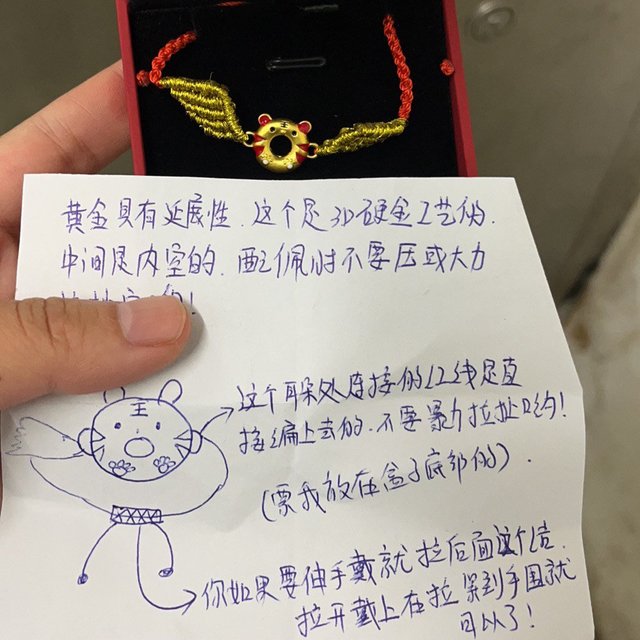 黄金具有延展性.这个是3D硬金工艺的.
中间是内空的.配佩时不要压或大力
!
王
这个耳朵处连接的红线是直
接编上去的.不要暴力拉扯哟!
(票我放在盒子底部的).
你如果要伸手戴就拉后面这个结.
拉开戴上在拉紧到手围就
可以了!